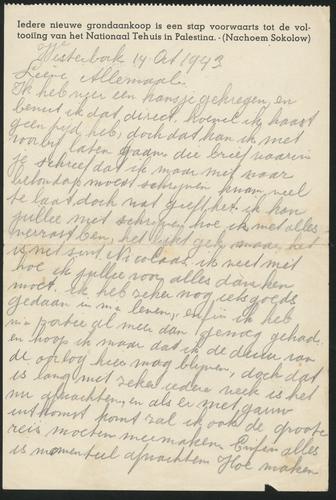 Iedere nieuwe grondaankoop is een stap voorwaarts tot de vol-
tooiing van het Nationaal Tehuis in Palestina. - (Nachoem Sokolow)
Westerbork 14 Oct 1943
Lieve Allemaal.
Ik heb weer een kansje gekregen, en
benut ik dat direct, hoewel ik haast
geen tijd heb, doch dat kan ik niet
voorbij laten gaan, die brief waarin
je schreef dat ik maar niet naar
moest schrijven kwam veel
te laat, doch wat geeft het. ik kan
jullie niet schrijven hoe ik met alles
verrast ben, het lijkt gek, maar het
is net Sint Nicolaas. ik weet niet
hoe ik jullie voor alles danken
moet. ik heb zeker nog iets goeds
gedaan in m'n leven, enfin ik heb
m'n portie al meer dan genoeg gehad,
en hoop ik maar dat ik de duur van
de oorlog hier mag blijven, doch dat
is lang niet zeker iedere week is het
nu afwachten, en als er niet gauw
uitkomst komt zal ik ook de groote
reis moeten meemaken. Enfin alles
is momenteel afwachten. Hoe maken